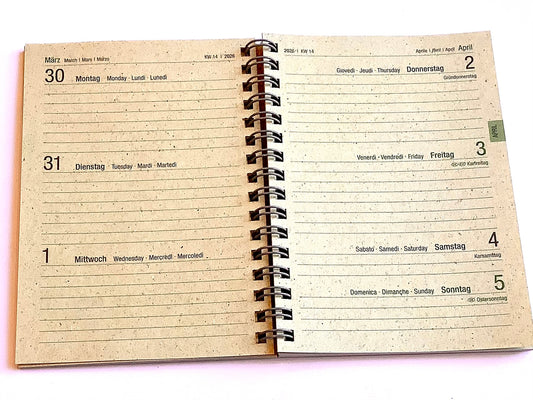 März March | Mars | Marzo KW 14 | 2026
30 Montag Monday · Lundi · Lunedì
31 Dienstag Tuesday · Mardi · Martedì
1 Mittwoch Wednesday · Mercredi · Mercoledì
2026 | KW 14 Aprile | Avril | April April
Giovedì · Jeudi · Thursday Donnerstag 2
Gründonnerstag
APRIL
Venerdì · Vendredi · Friday Freitag 3
Karfreitag
Sabato · Samedi · Saturday Samstag 4
Karsamstag
Domenica · Dimanche · Sunday Sonntag 5
Ostersonntag